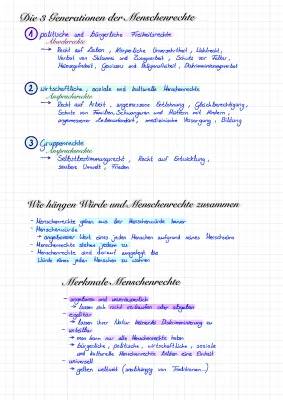 Die 3 Generationen der Menschenrechte
1 politische und bürgerliche Freiheitsrechte
Abwehrrechte
→ Recht auf Leben, Körperliche Unversehrtheit, Wahlrecht,
Verbot von Sklaverei und Zwangsarbeit, Schutz vor Folter,
Meinungsfreiheit, Gewissens und Religionsfreiheit, Diskriminierungsverbot
2 wirtschaftliche, soziale und kulturelle Menschenrechte
Anspruchsrechte
→ Recht auf Arbeit, angemessene Entlohnung, Gleichberechtigung,
Schutz von Familien, Schwangeren und Müttern mit Kindern,
angemessener Lebensstandard, medizinische Versorgung, Bildung
3 Gruppenrechte
Anspruchsrechte
→ Selbstbestimmungsrecht, Recht auf Entwicklung,
saubere Umwelt, Frieden
Wie hängen Würde und Menschenrechte zusammen
- Menschenrechte gehen aus der Menschenwürde hervor
- Menschenwürde
→ angeborener Wert eines jeden Menschen aufgrund seines Menschseins
- Menschenrechte stehen jedem zu
- Menschenrechte sind darauf ausgelegt die
Würde eines jeden Menschen zu wahren
Merkmale Menschenrechte
- angeboren und unveräußerlich
→ lassen sich nicht verkaufen oder abgeben
- egalitär
→ lassen ihrer Natur keinerlei Diskriminierung zu
- unteilbar
→ man kann nur alle Menschenrechte haben
→ bürgerliche, politische, wirtschaftliche, soziale
und kulturelle Menschenrechte bilden eine Einheit
- universell
→ gelten weltweit (unabhängig von Traditionen...)